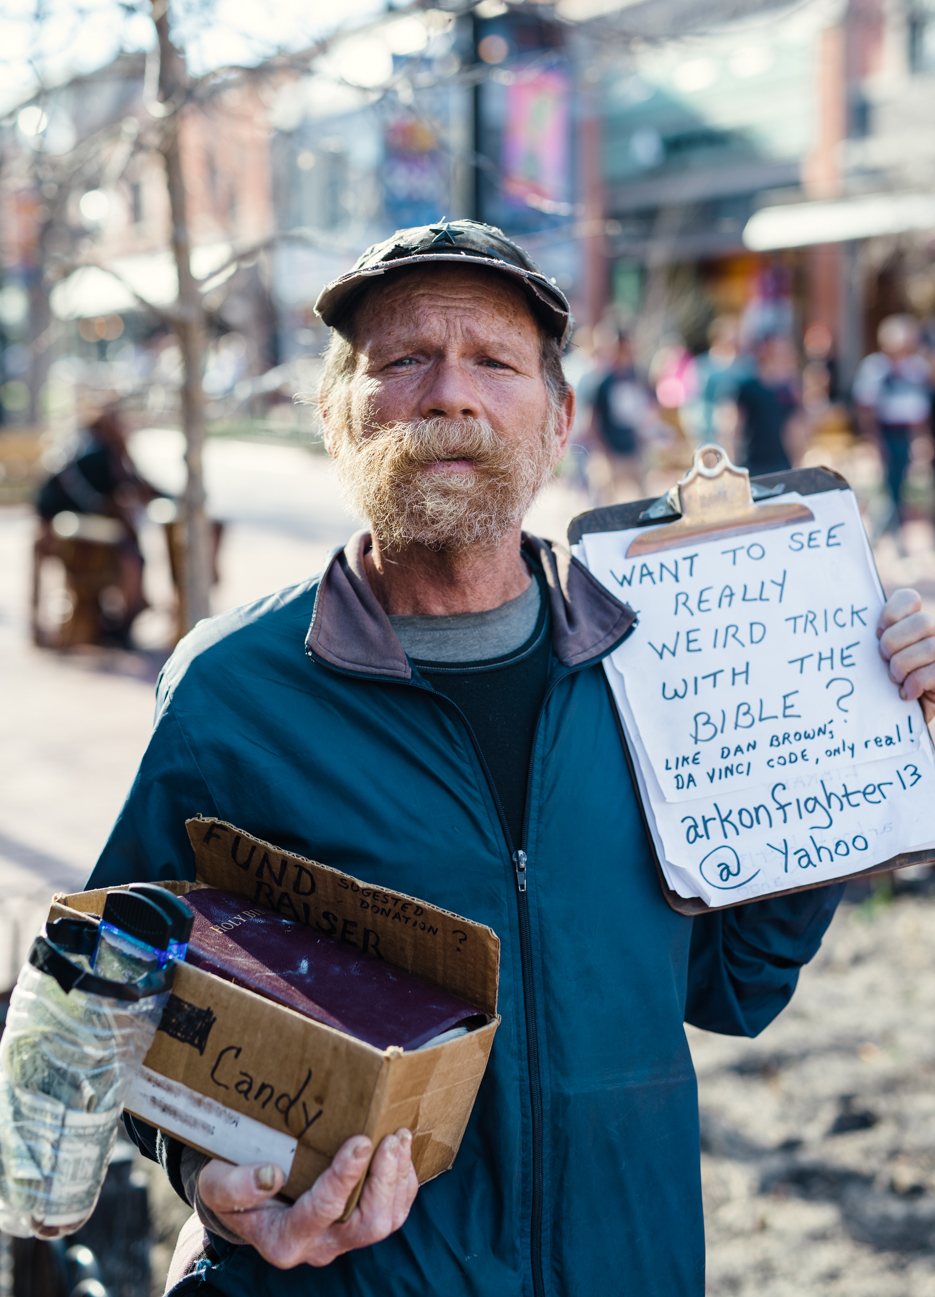 WANT TO SEE
REALLY
WEIRD TRICK
WITH THE
BIBLE ?
LIKE DAN BROWN'S
DA VINCI CODE, only real!
arkonfighter13
@ Yahoo
FUND
RAISER
SUGGESTED
DONATION ?
HOLY
Candy